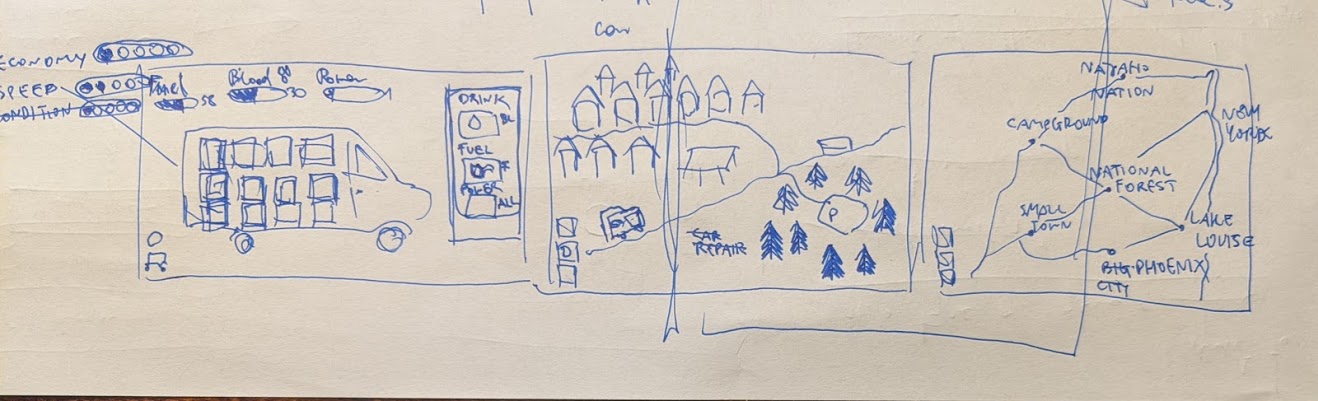 ECONOMY
SPEED
CONDITION
58
Blood
30
Power
DRINK
BL
FUEL
F
POWER
ALL
CAR
REPAIR
P
NAVAHO
NATION
CAMPGROUND
NATIONAL
FOREST
SMALL
TOWN
LAKE
LOUISE
BIG PHOENIX
CITY